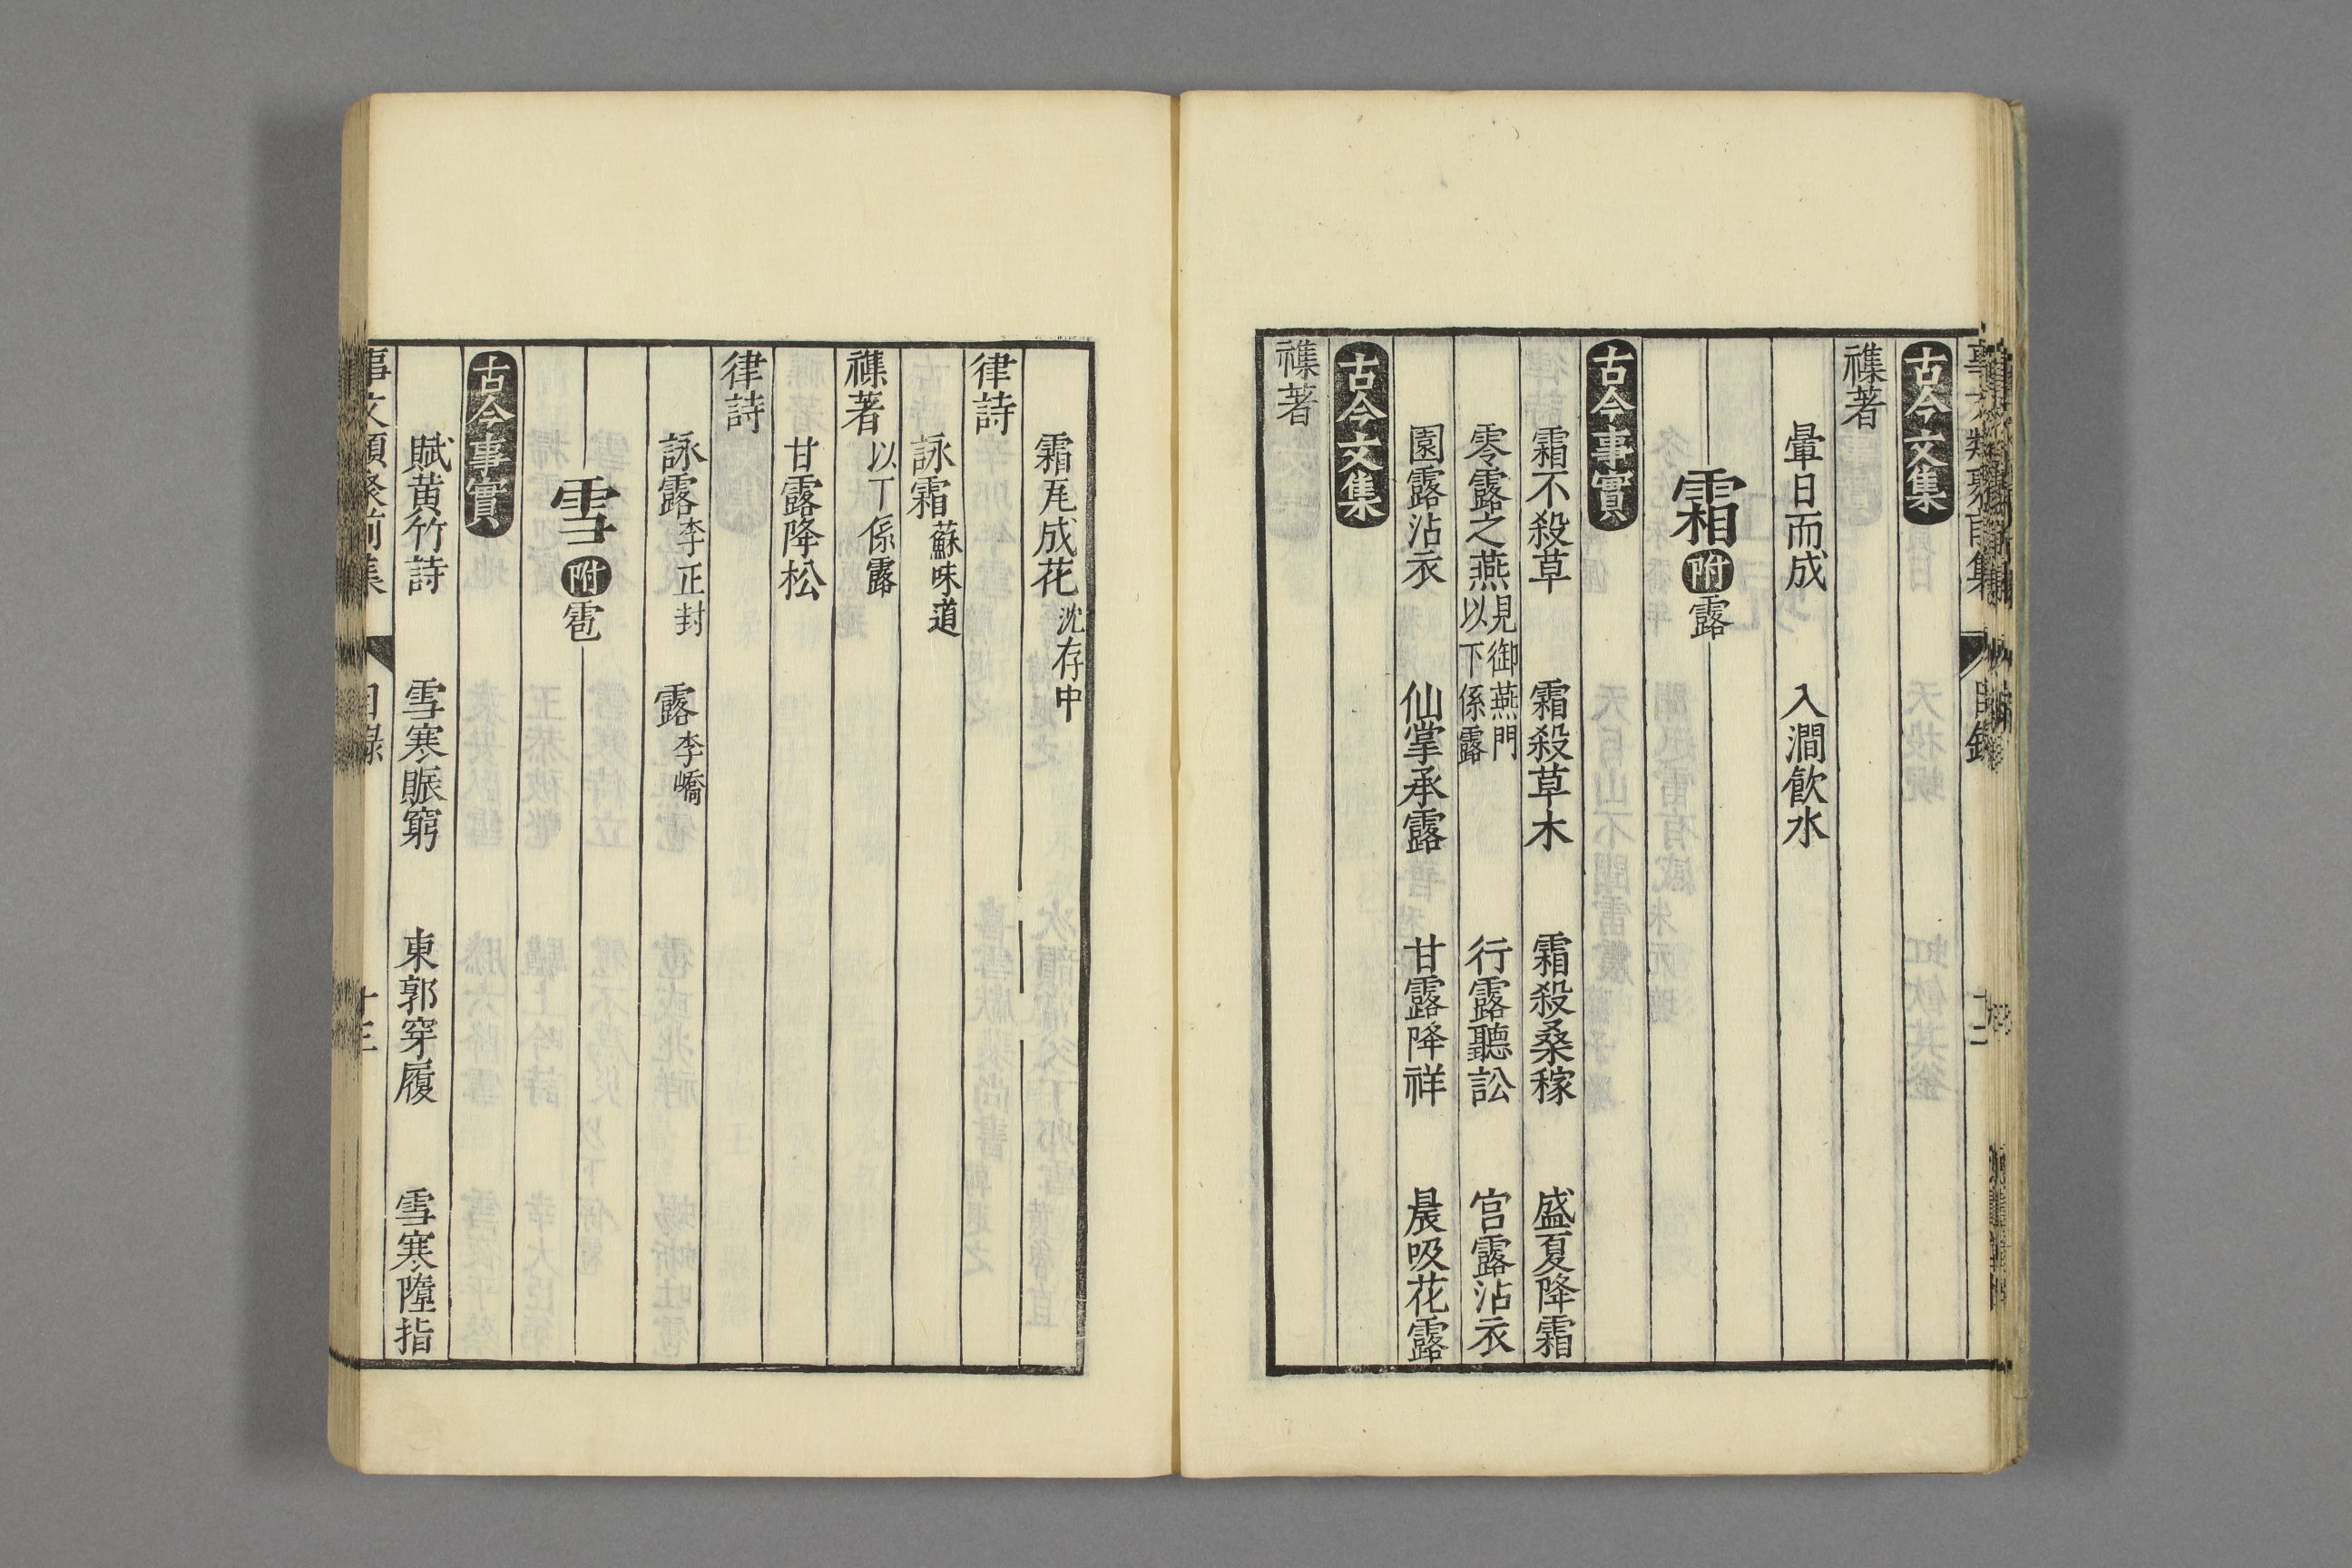 古今文集
襍著
暈日而成　入澗飲水
霜 附 露
古今事實
霜不殺草　霜殺草木　霜殺桑稼　盛夏降霜
零露之燕 見御燕門 以下係露　行露聽訟　宫露沾衣
園露沾衣　仙掌承露　甘露降祥　晨吸花露
古今文集
襍著
霜瓦成花 沈存中
律詩
詠霜 蘇味道
襍著 以丅係露
甘露降松
律詩
詠露 李正封　露 李嶠
雪 附 雹
古今事實
賦黄竹詩　雪寒賑窮　東郭穿履　雪寒墮指
目録